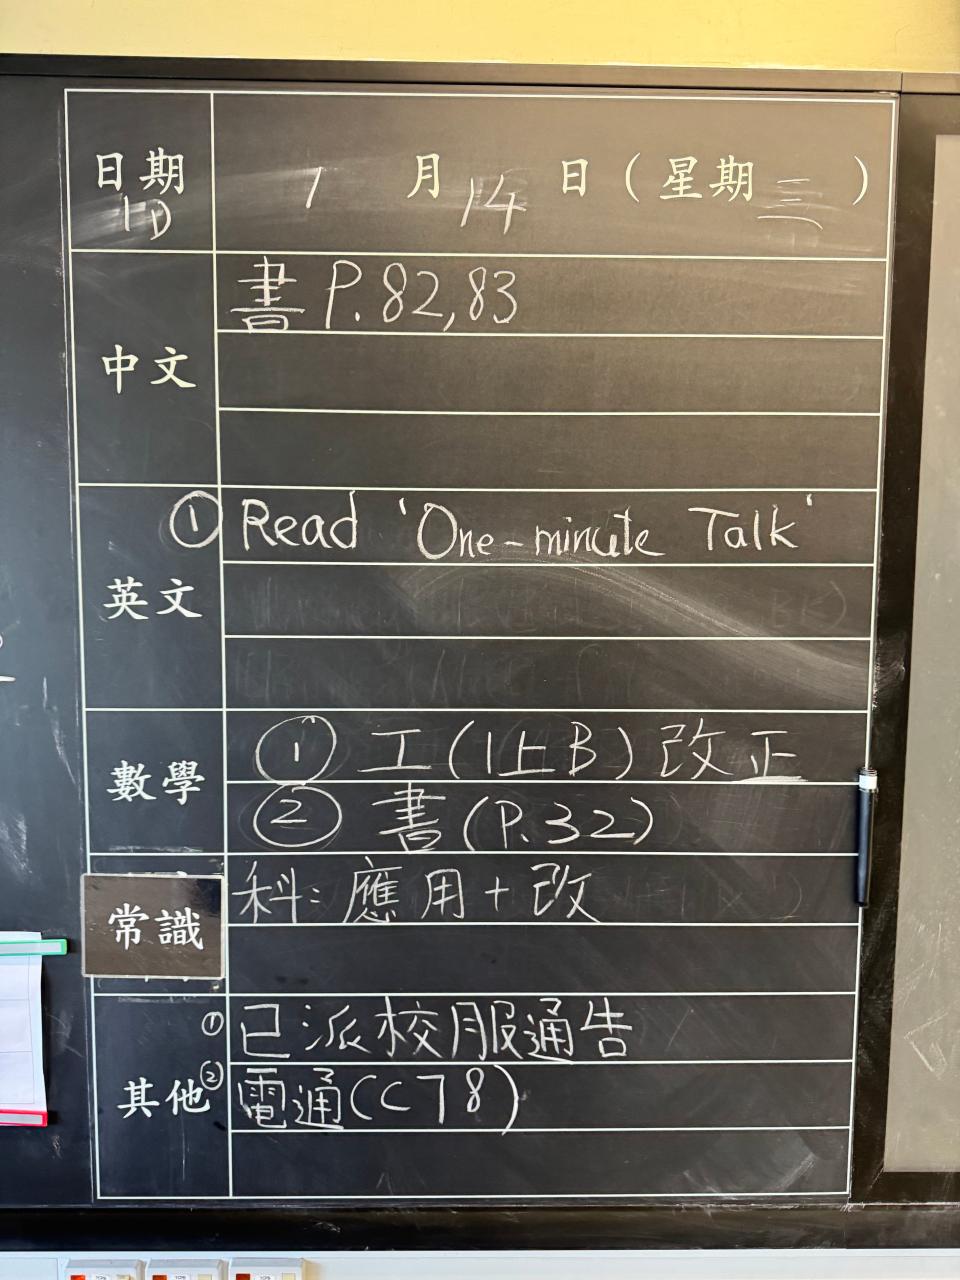 日期 1月14日(星期三)
1D
中文 書 P.82,83
英文 ① Read 'One-minute Talk'
數學 ① 工(1上B)改正
② 書(P.32)
常識 科:應用+改
其他 ① 已派校服通告
② 電通(C78)